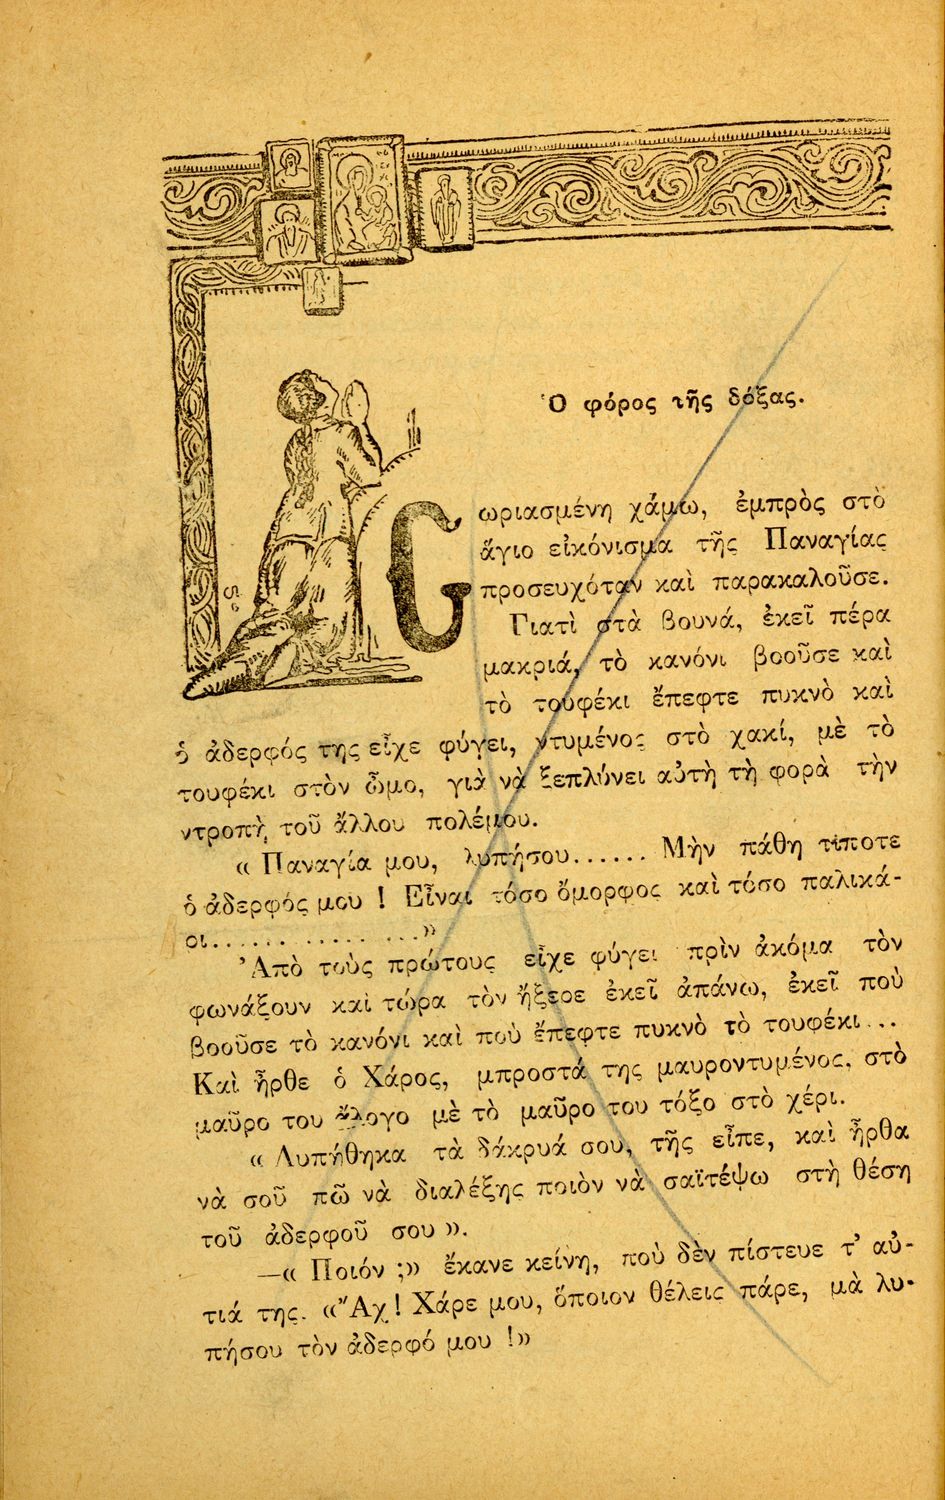 Ὁ φόρος τῆς δόξας.
Σωριασμένη χάμω, ἐμπρὸς στὸ
ἅγιο εἰκόνισμα τῆς Παναγίας
προσευχόταν καὶ παρακαλοῦσε.
Γιατὶ στὰ βουνά, ἐκεῖ πέρα
μακριά, τὸ κανόνι βοοῦσε καὶ
τὸ τουφέκι ἔπεφτε πυκνὸ καὶ
ὁ ἀδερφός της εἶχε φύγει, ντυμένος στὸ χακί, μὲ τὸ
τουφέκι στὸν ὦμο, γιὰ νὰ ξεπλύνει αὐτὴ τὴ φορὰ τὴν
ντροπὴ τοῦ ἄλλου πολέμου.
« Παναγία μου, λυπήσου...... Μὴν πάθη τίποτε
ὁ ἀδερφός μου ! Εἶναι τόσο ὄμορφος καὶ τόσο παλικά-
ρι.............. »
Ἀπὸ τοὺς πρώτους εἶχε φύγει πρὶν ἀκόμα τὸν
φωνάξουν καὶ τώρα τὸν ἤξερε ἐκεῖ ἀπάνω, ἐκεῖ ποὺ
βοοῦσε τὸ κανόνι καὶ ποὺ ἔπεφτε πυκνὸ τὸ τουφέκι...
Καὶ ἦρθε ὁ Χάρος, μπροστά της μαυροντυμένος, στὸ
μαῦρο του ἄλογο μὲ τὸ μαῦρο του τόξο στὸ χέρι.
« Λυπήθηκα τὰ δάκρυά σου, τῆς εἶπε, καὶ ἦρθα
νὰ σοῦ πῶ νὰ διαλέξης ποιὸν νὰ σαϊτέψω στὴ θέση
τοῦ ἀδερφοῦ σου ».
—« Ποιόν ;» ἔκανε κείνη, ποὺ δὲν πίστευε τ’ αὐ-
τιά της. «Ἄχ ! Χάρε μου, ὅποιον θέλεις πάρε, μὰ λυ-
πήσου τὸν ἀδερφό μου !»